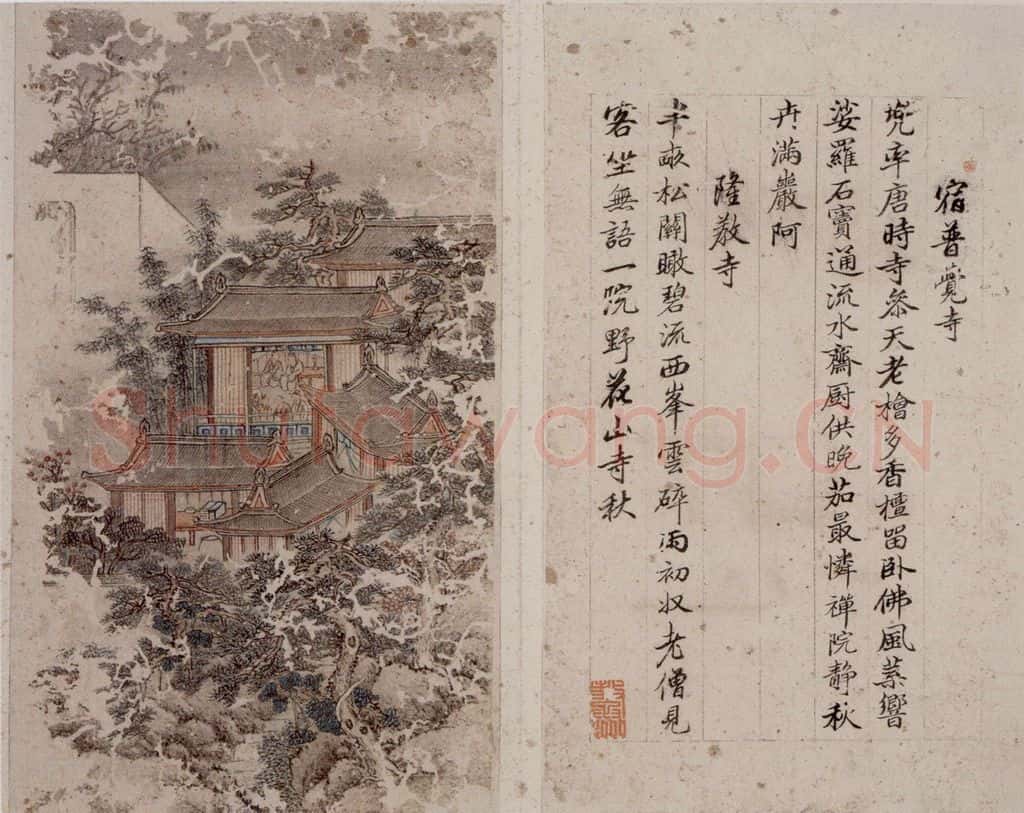 宿普覺寺
兜率唐時寺叅天老檜多香檀留卧佛風葉響
娑羅石竇通流水齋厨供晚茄最憐禪院靜秋
卉滿巖阿
隆教寺
半畝松關瞰碧流西峯雲碎雨初收老僧見
客坐無語一院野花山寺秋
Shufawang.CN